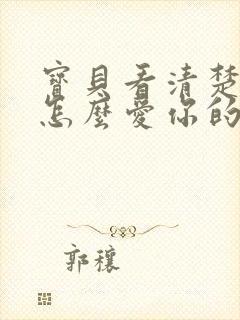 寶貝看清楚
怎麼愛你的
郭穰